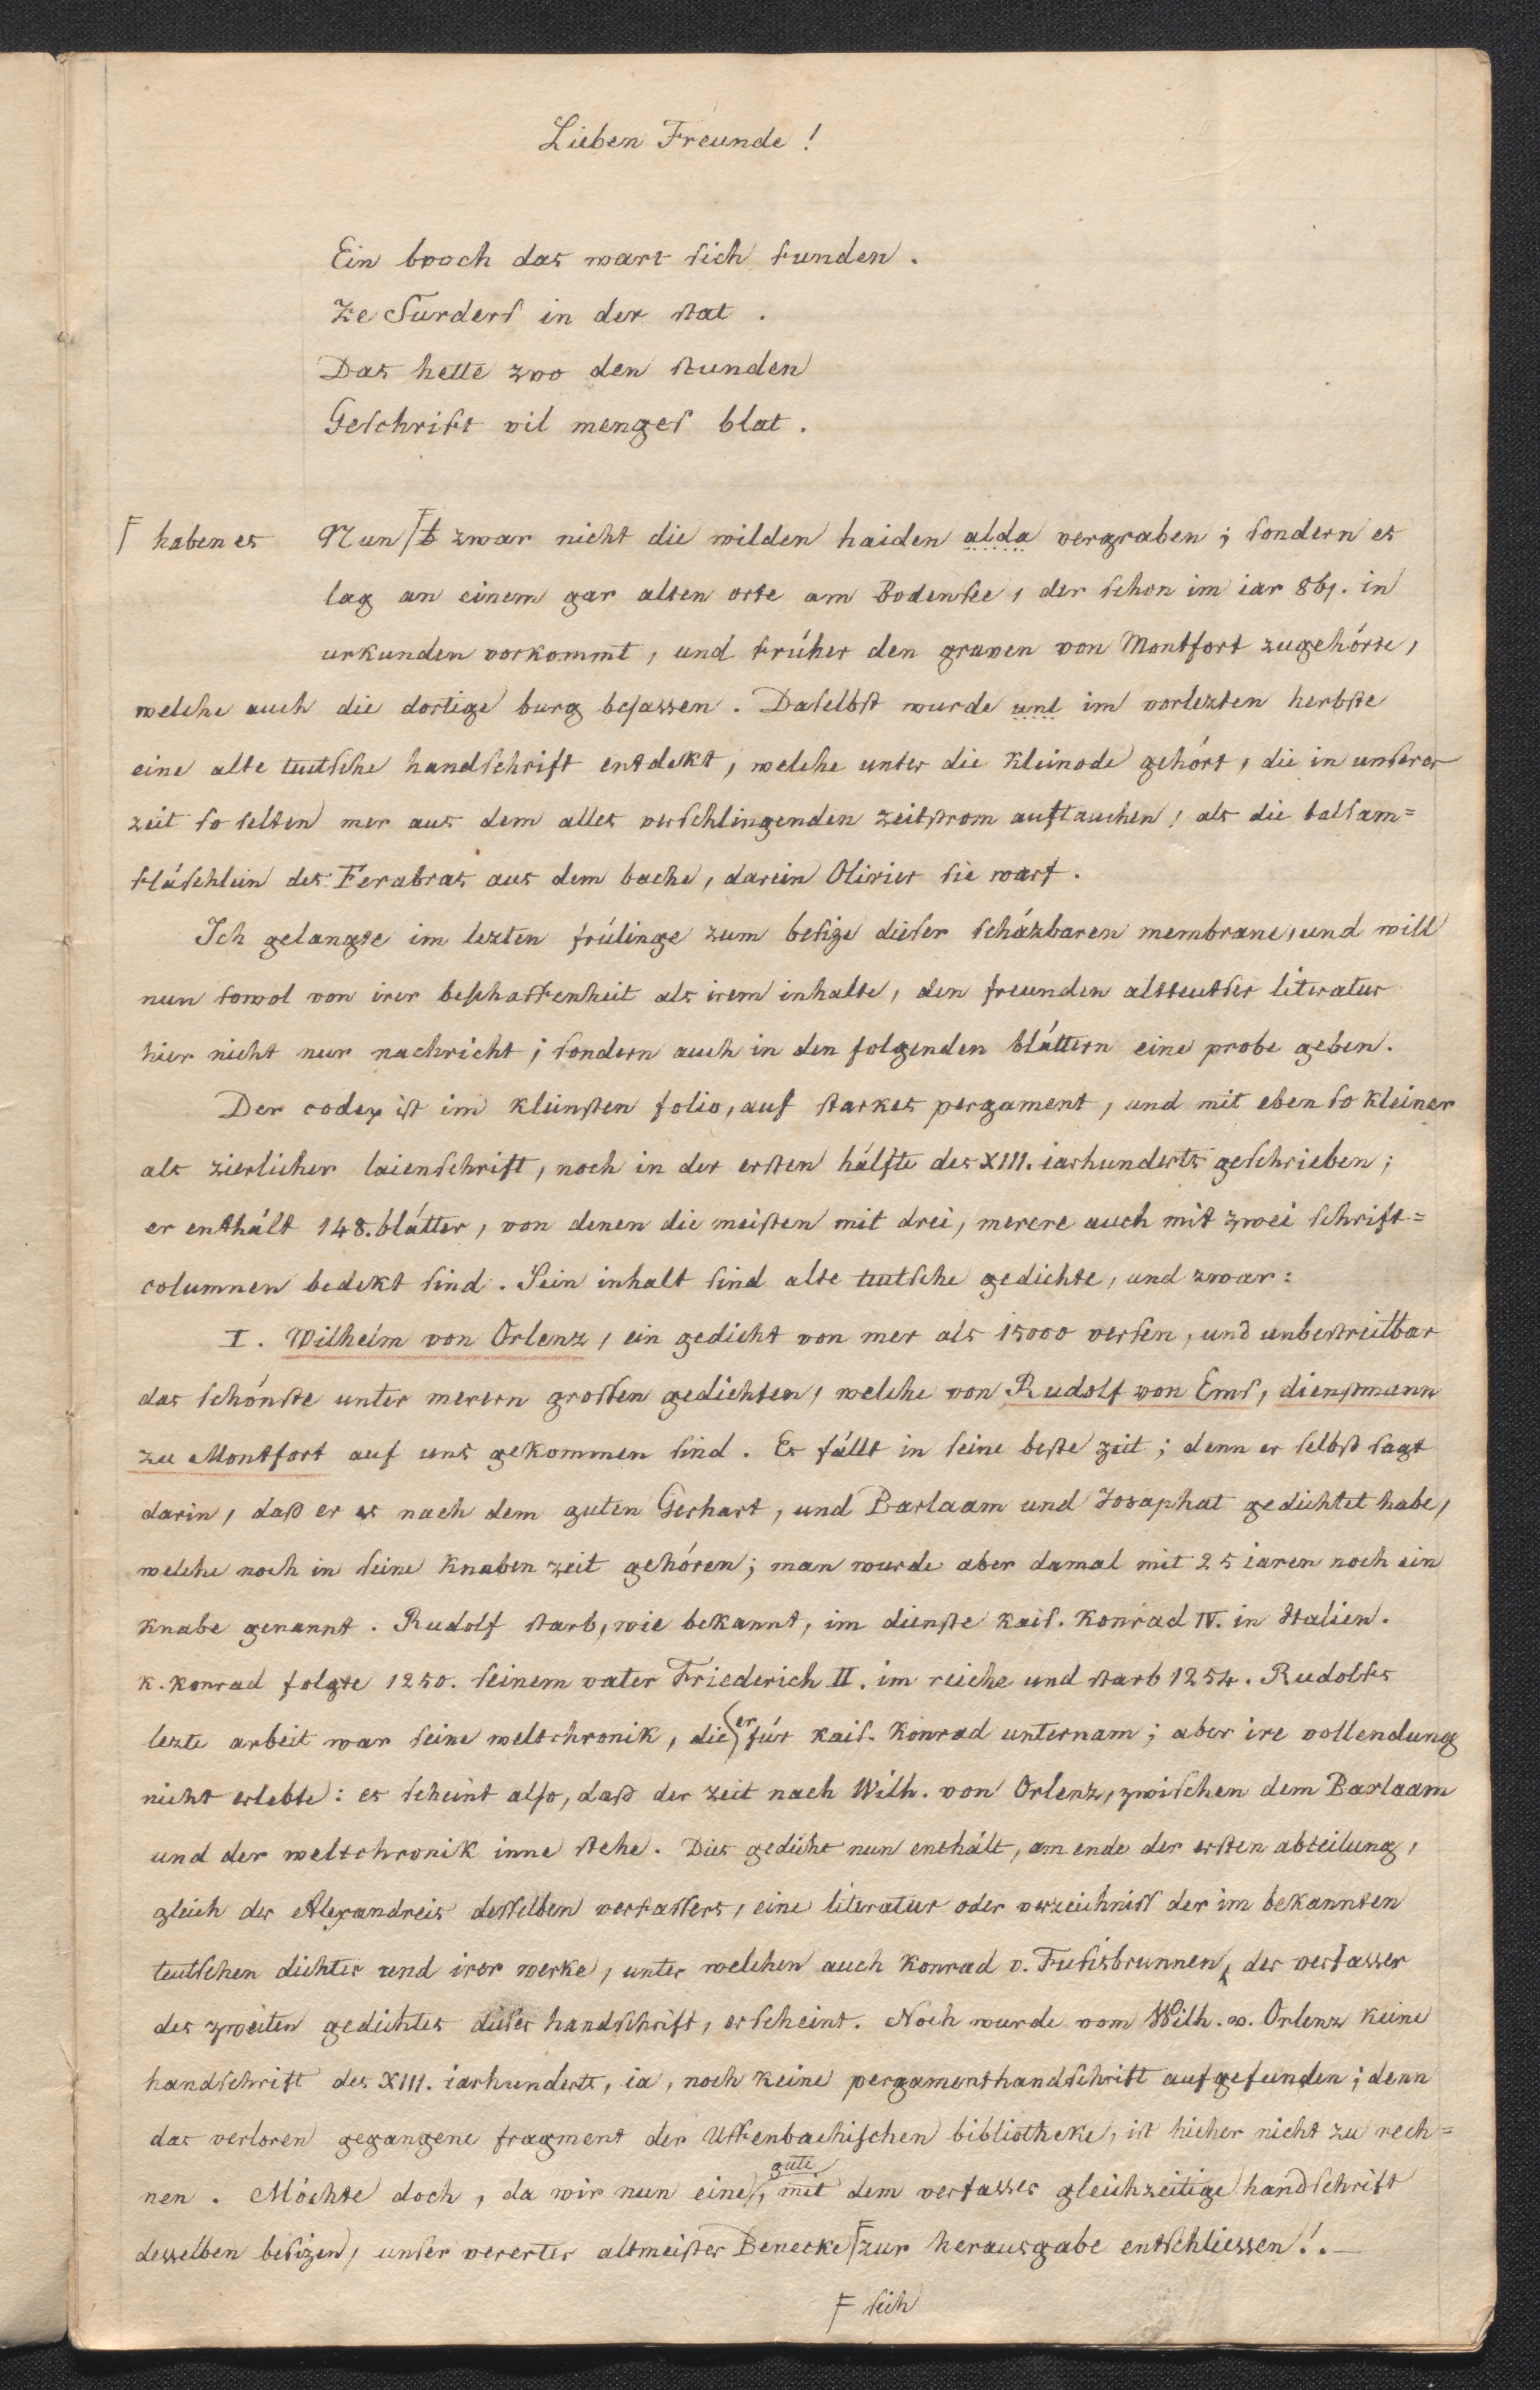 Lieben Freunde!
Ein bvoch das wart sich funden.
Ze surders in der stat.
Das hette zvo den stunden
Geschrift vil menges blat.
F haben es Nun F zwar nicht die wilden haiden alda vergraben; sondern es
lag an einem gar alten orte am Bodensee, der schon im iar 861. in
urkunden vorkommt, und früher den graven von Montfort zugehörte,
welche auch die dortige burg besassen. Daselbst wurde uns im vorlezten herbste
eine alte teutsche handschrift entdekt, welche unter die kleinode gehört, die in unserer
zeit so selten mer aus dem alles verschlingenden zeitstrom auftauchen, als die balsam=
fläschlein des Ferabras aus dem bache, darein Olivier sie warf.
Ich gelangte im lezten frülinge zum besize dieser schäzbaren membrane, und will
nun sowol von irer beschaffenheit als irem inhalte, den freunden altteutser literatur
hier nicht nur nachricht; sondern auch in den folgenden blättern eine probe geben.
Der codex ist im kleinsten folio, auf starkes pergament, und mit eben so kleiner
als zierlicher laienschrift, noch in der ersten hälfte des XIII. iarhunderts geschrieben;
er enthält 148. blätter, von denen die meisten mit drei, merere auch mit zwei schrift=
columnen bedekt sind. Sein inhalt sind alte teutsche gedichte, und zwar:
I. Wilhelm von Orlenz, ein gedicht von mer als 15000 versen, und unbestreitbar
das schönste unter merern grossen gedichten, welche von Rudolf von Ems, dienstmann
zu Montfort auf uns gekommen sind. Es fällt in seine beste zeit; denn er selbst sagt
darin, daß er es nach dem guten Gerhart, und Barlaam und Josaphat gedichtet habe,
welche noch in seine knaben zeit gehören; man wurde aber damal mit 25 iaren noch ein
knabe genannt. Rudolf starb, wie bekannt, im dienste kais. Konrad IV. in Italien.
K. Konrad folgte 1250. seinem vater Friederich II. im reiche und starb 1254. Rudolfs
lezte arbeit war seine weltchronik, die er für kais. Konrad unternam; aber ire vollendung
nicht erlebte: es scheint also, daß der zeit nach Wilh. von Orlenz, zwischen dem Barlaam
und der weltchronik inne stehe. Dies gedicht nun enthält, am ende der ersten abteilung,
gleich der Alexandreis desselben verfassers, eine literatur oder verzeichniss der im bekannten
teutschen dichter und irer werke, unter welchen auch Konrad v. Fusisbrunnen, der verfasser
des zweiten gedichtes diser handschrift, erscheint. Noch wurde vom Wilh. v. Orlenz keine
handschrift des XIII. iarhunderts, ia, noch keine pergamenthandschrift aufgefunden; denn
das verloren gegangene fragment der Uffenbachischen bibliotheke, ist hieher nicht zu rech=
nen. Möchte doch, da wir nun eine gute, mit dem verfasser gleichzeitige handschrift
desselben besizen, unser vererter altmeister Benecke F zur herausgabe entschliessen!. —
F sich